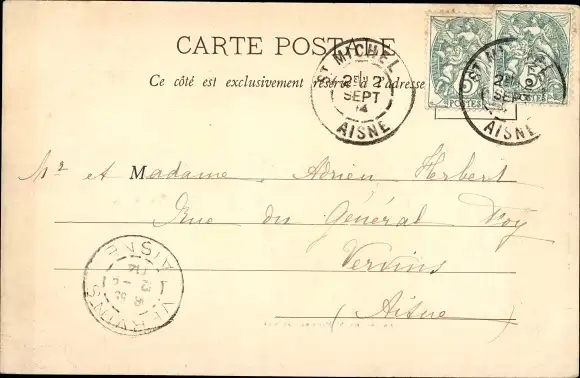 CARTE POSTALE
Ce côté est exclusivement réservé à l'adresse
ST MICHEL
2E
2
SEPT
AISNE
5
POSTES
5
POSTES
ST MI
2E
SEPT
AISNE
Mr et Madame Adrien Herbert
Rue du Général Foy
Vervins
(Aisne)
VERVINS
AISNE